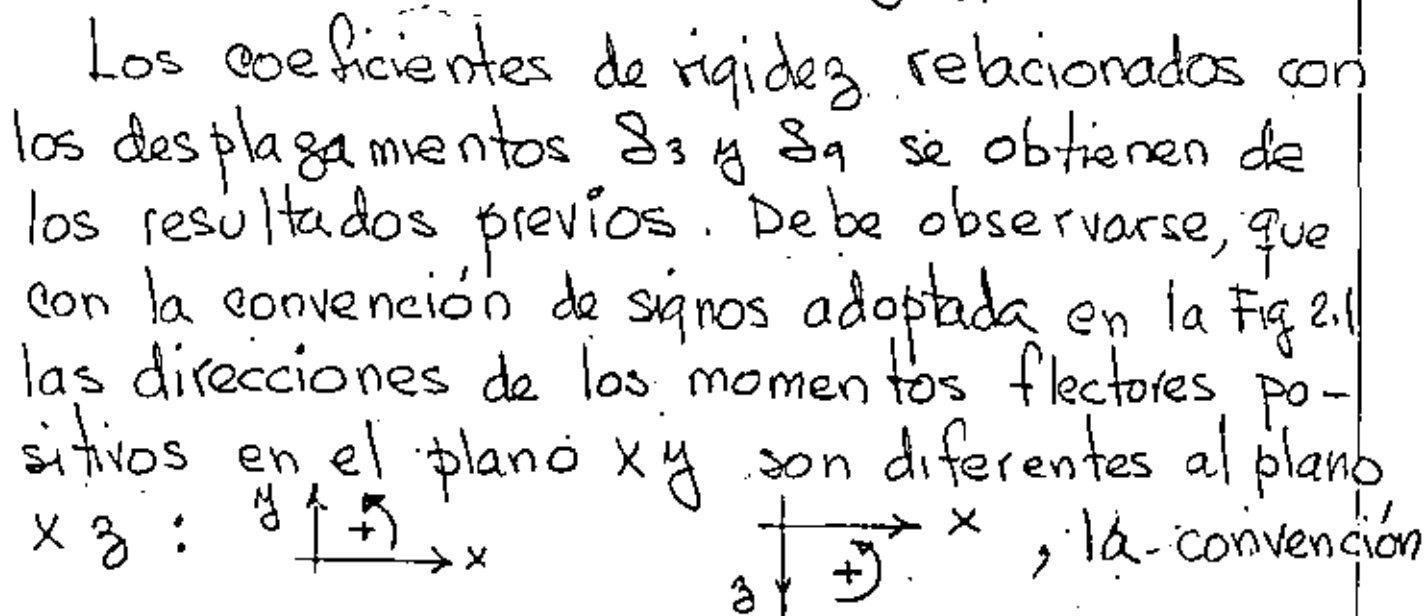 Los coeficientes de rigidez relacionados con
los desplazamientos δ3 y δ9 se obtienen de
los resultados previos. Debe observarse, que
con la convención de signos adoptada en la Fig 2.1
las direcciones de los momentos flectores po-
sitivos en el plano xy son diferentes al plano
xz : y + x x z + , la convención